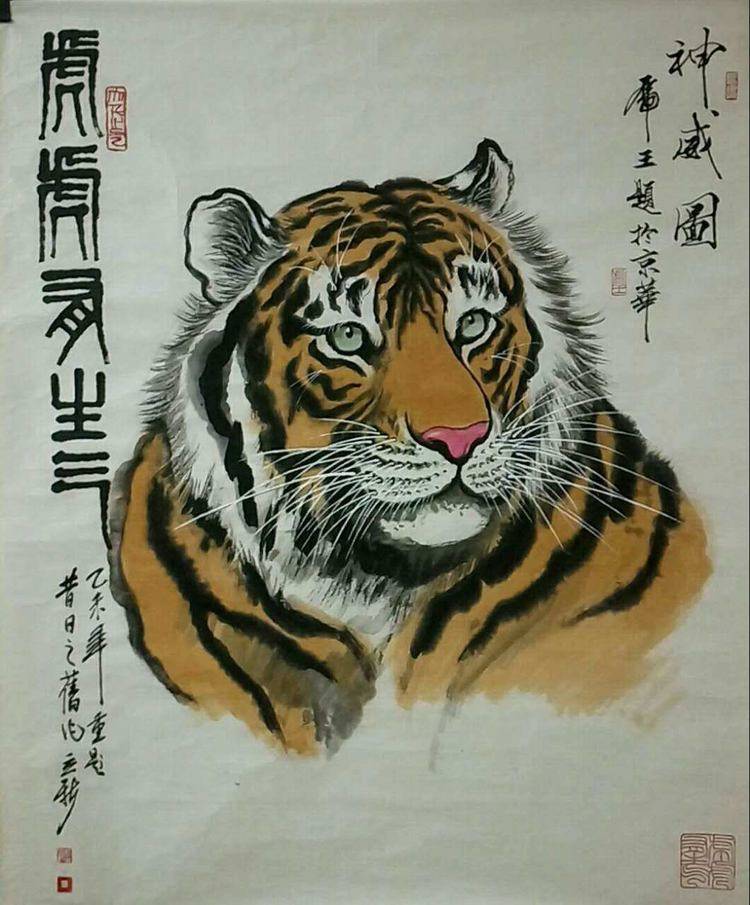 神威圖
虎王題於京華
虎虎有生气
乙未年重題
昔日之舊作立新